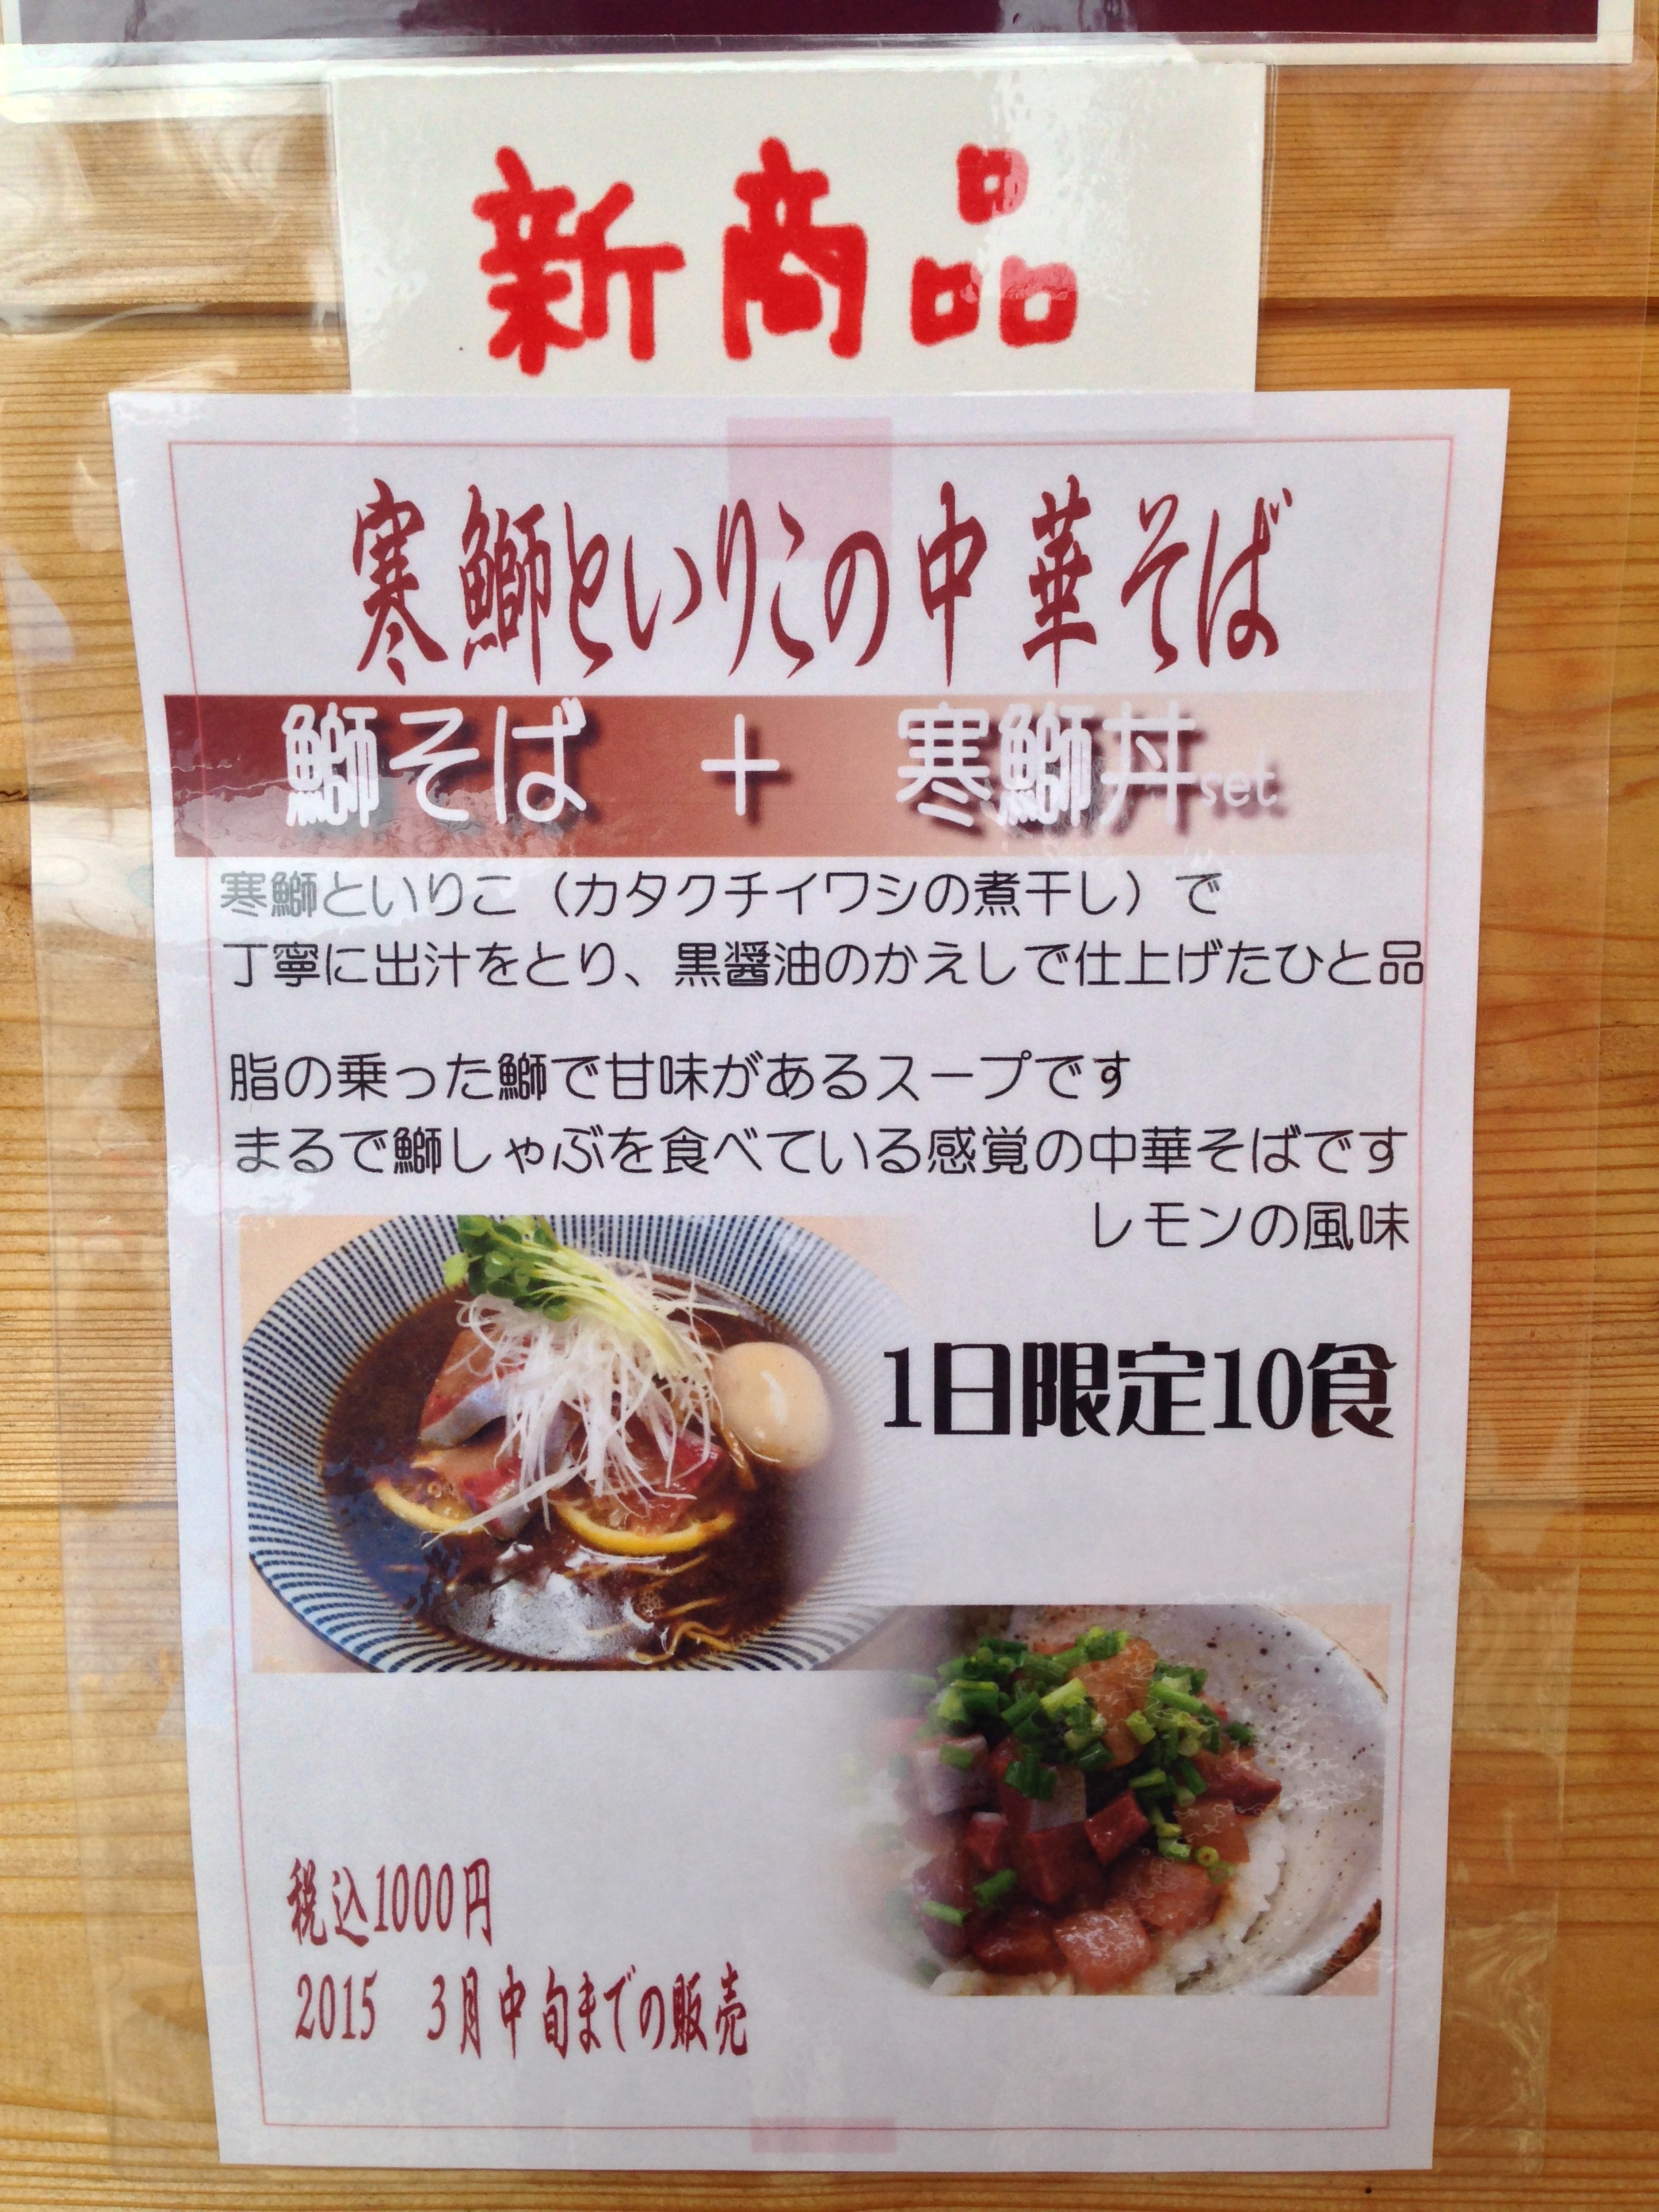 新商品
寒鰤といりこの中華そば
鰤そば + 寒鰤丼set
寒鰤といりこ（カタクチイワシの煮干し）で
丁寧に出汁をとり、黒醤油のかえしで仕上げたひと品
脂の乗った鰤で甘味があるスープです
まるで鰤しゃぶを食べている感覚の中華そばです
レモンの風味
1日限定10食
税込1000円
2015 3月中旬までの販売